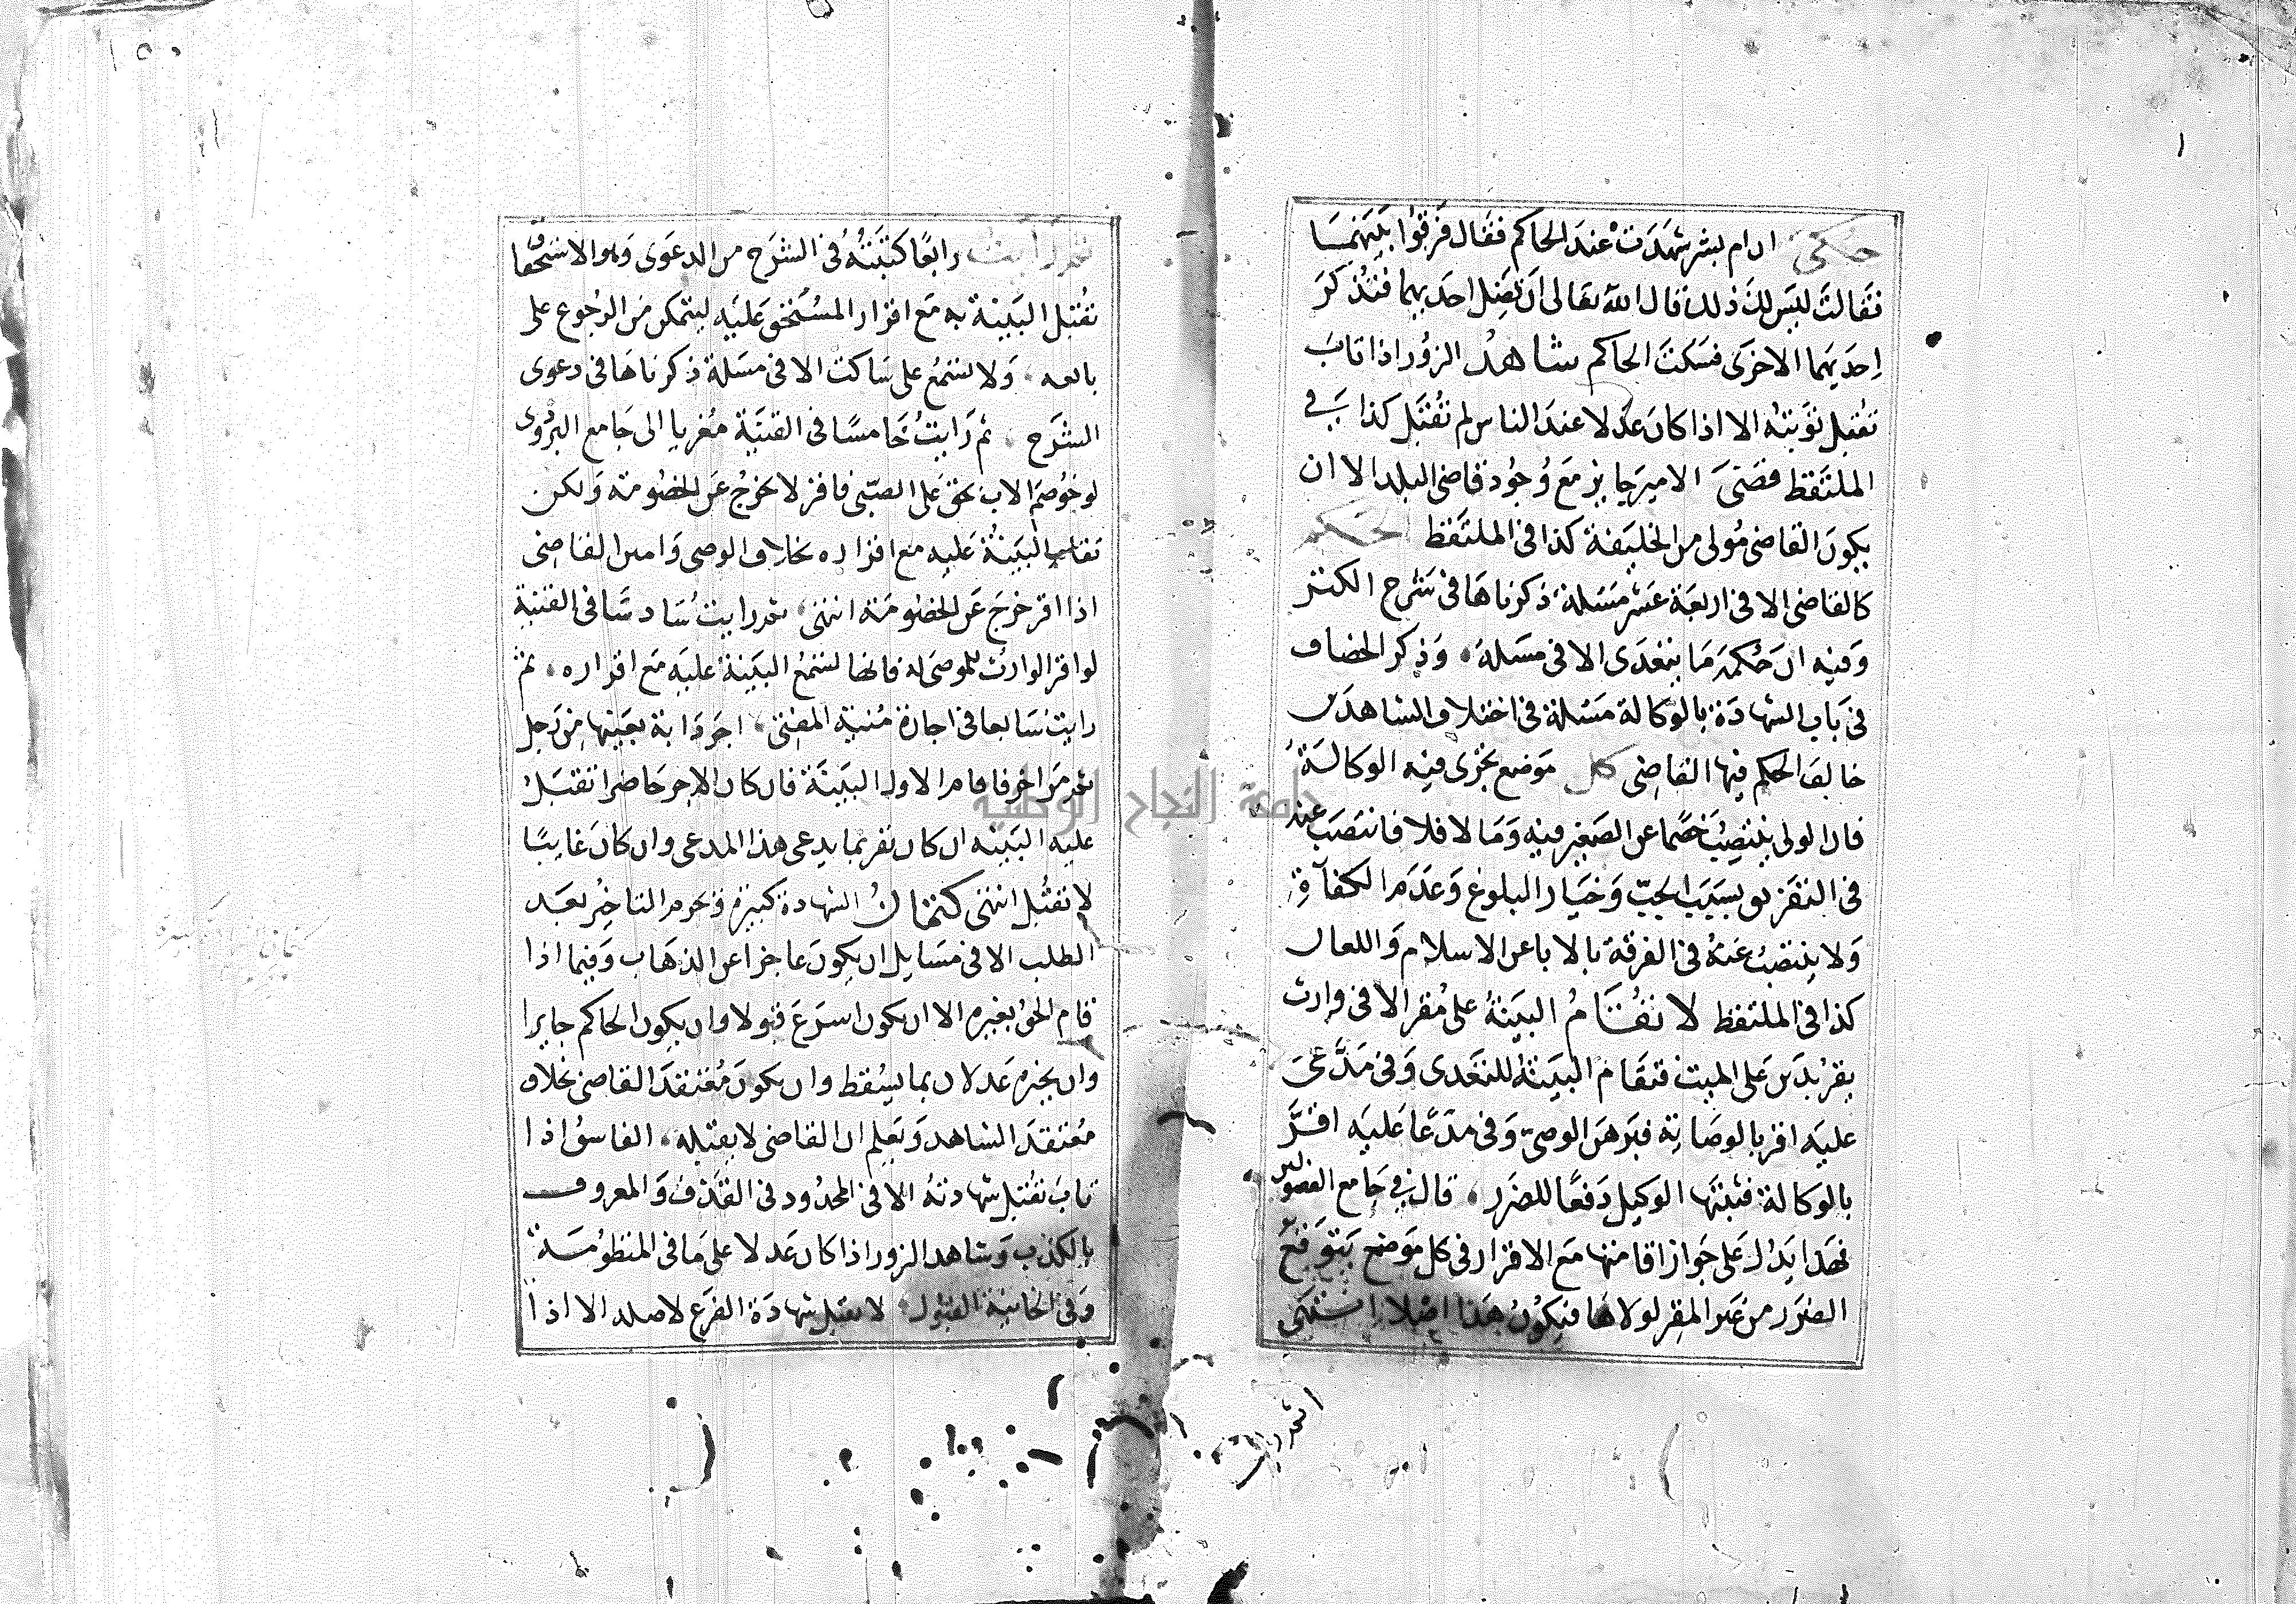 حكي ان ام بشر شهدت عند الحاكم فقال فرقوا بينهما
فقالت ليس لك ذلك قال الله تعالى ان تضل احديهما فتذكر
احديهما الاخرى فسكت الحاكم شاهد الزور اذا تاب
تقبل توبته الا اذا كان عدلا عند الناس لم تقبل كذا في
الملتقط قضى الامير جايز مع وجود قاضي البلد الا ان
يكون القاضي مولى من الخليفة كذا في الملتقط الحكم
كالقاضي الا في اربعة عشر مسئلة ذكرناها في شرح الكنز
وفيه ان حكمه ما يتعدى الا في مسئلة وذكر الخصاف
في باب الشهادة بالوكالة مسئلة في اختلاف الشاهدين
خالف الحكم فيها القاضي كل موضع تجزى فيه الوكالة
فان الولي ينتصب خصما عن الصغير فيه وما لا فلا فانتصب عنه
في التفريق بسبب الجب وخيار البلوغ وعدم الكفآة
ولا ينتصب عنه في الفرقة بالابا عن الاسلام واللعان
كذا في الملتقط لا تقام البينة على مقر الا في وارث
يقر بدين على الميت فتقام البينة للتعدي وفي مدعى
عليه اقر بالوصاية فبرهن الوصي وفي مدعا عليه اقر
بالوكالة فثبتها الوكيل دفعا للضرر قال في جامع الفصولين
فهذا يدل على جواز اقامتها مع الاقرار في كل موضع يتوقع
الضرر من غير المقر لولاها فيكون هذا اصلا انتهى
ثم رايت رابعا كتبته في الشرح من الدعوى وهو الاستحقاق
تقبل البينة به مع اقرار المستحق عليه ليتمكن من الرجوع على
بائعه ولا تسمع على ساكت الا في مسئلة ذكرناها في دعوى
الشرح ثم رايت خامسا في القنية معزيا الى جامع البزدوى
لو خوصم الاب بحق على الصبي فاقر لا يخرج عن الخصومة ولكن
تقام البينة عليه مع اقراره بخلاف الوصي وامين القاضي
اذا اقر خرج عن الخصومة انتهى ثم رايت سادسا في القنية
لو اقر الوارث للموصى له فانها تسمع البينة عليه مع اقراره ثم
رايت سابعا في اجارة منية المفتي اجر دابة بعينها من رجل
ثم من اخر فاقام الاول البينة فان كان الاجر حاضرا تقبل
عليه البينة ان كان يقر بما يدعي هذا المدعي وان كان غايبا
لا تقبل انتهى كتمان الشهادة كبيرة ويحرم التاخير بعد
الطلب الا في مسايل ان يكون عاجزا عن الذهاب وفيما اذا
قام الحق بغيره الا ان يكون اسرع قبولا وان يكون الحاكم جايرا
وان يخبره عدلان بما يسقط وان يكون معتقد القاضي بخلاف
معتقد الشاهد ويعلم ان القاضي لا يقبله الفاسق اذا
تاب تقبل شهادته الا في المحدود في القذف والمعروف
بالكذب وشاهد الزور اذا كان عدلا على ما في المنظومة
وفي الخانية القبول لا تقبل شهادة الفرع لاصله الا اذا
كتمان الشهادة كبيرة